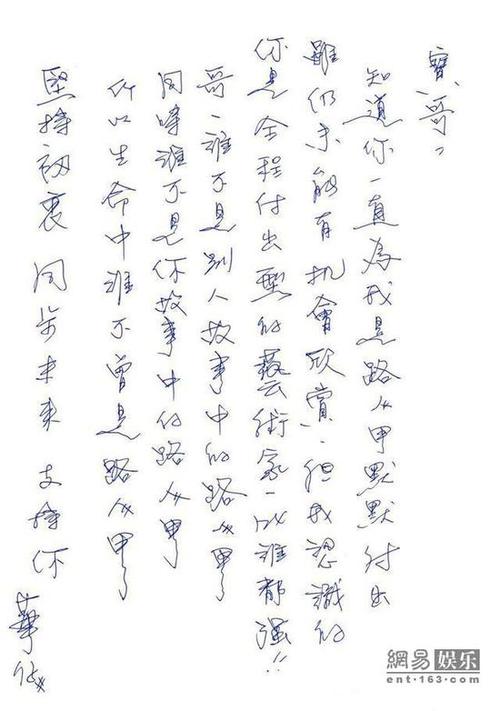 寶哥：
知道你一直為我是路人甲默默付出
雖仍未能有机會欣賞，但我認識的
你是全程付出型的藝術家，比誰都强!!
哥，誰不是別人故事中的路人甲
同時誰不是你故事中的路人甲
所以生命中誰不曾是路人甲
堅持初衷 同步未來 支持你
華仔
網易 娱乐
ent·163.com